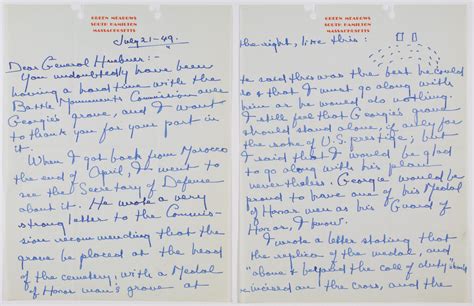 GREEN MEADOWS
SOUTH HAMILTON
MASSACHUSETTS
July 21-49.
Dear General Huebner:-
You undoubtedly have been
having a hard time with the
Battle Monuments Commission over
Georgie's grave, and I want
to thank you for your part in
it.
When I got back from Morocco
the end of April, I went to
see the Secretary of Defense
about it. He wrote a very
strong letter to the Commis-
sion recommending that the
grave be placed at the head
of the cemetery, with a Medal
of Honor man's grave at
GREEN MEADOWS
SOUTH HAMILTON
MASSACHUSETTS
the right, like this:
He said this was the best he could
do & that I must go along with
him or he would do nothing.
I still feel that Georgie's grave
should stand alone, if only for
the sake of U.S. prestige; but
I said that I would be glad
to go along with his plan
nevertheless. Georgie would be
proud to have one of his Medal
of Honor men as his Guard of
Honor, I know.
I wrote a letter stating that
the replica of the medal, and
"above & beyond the call of duty"
be incised on the cross, and the